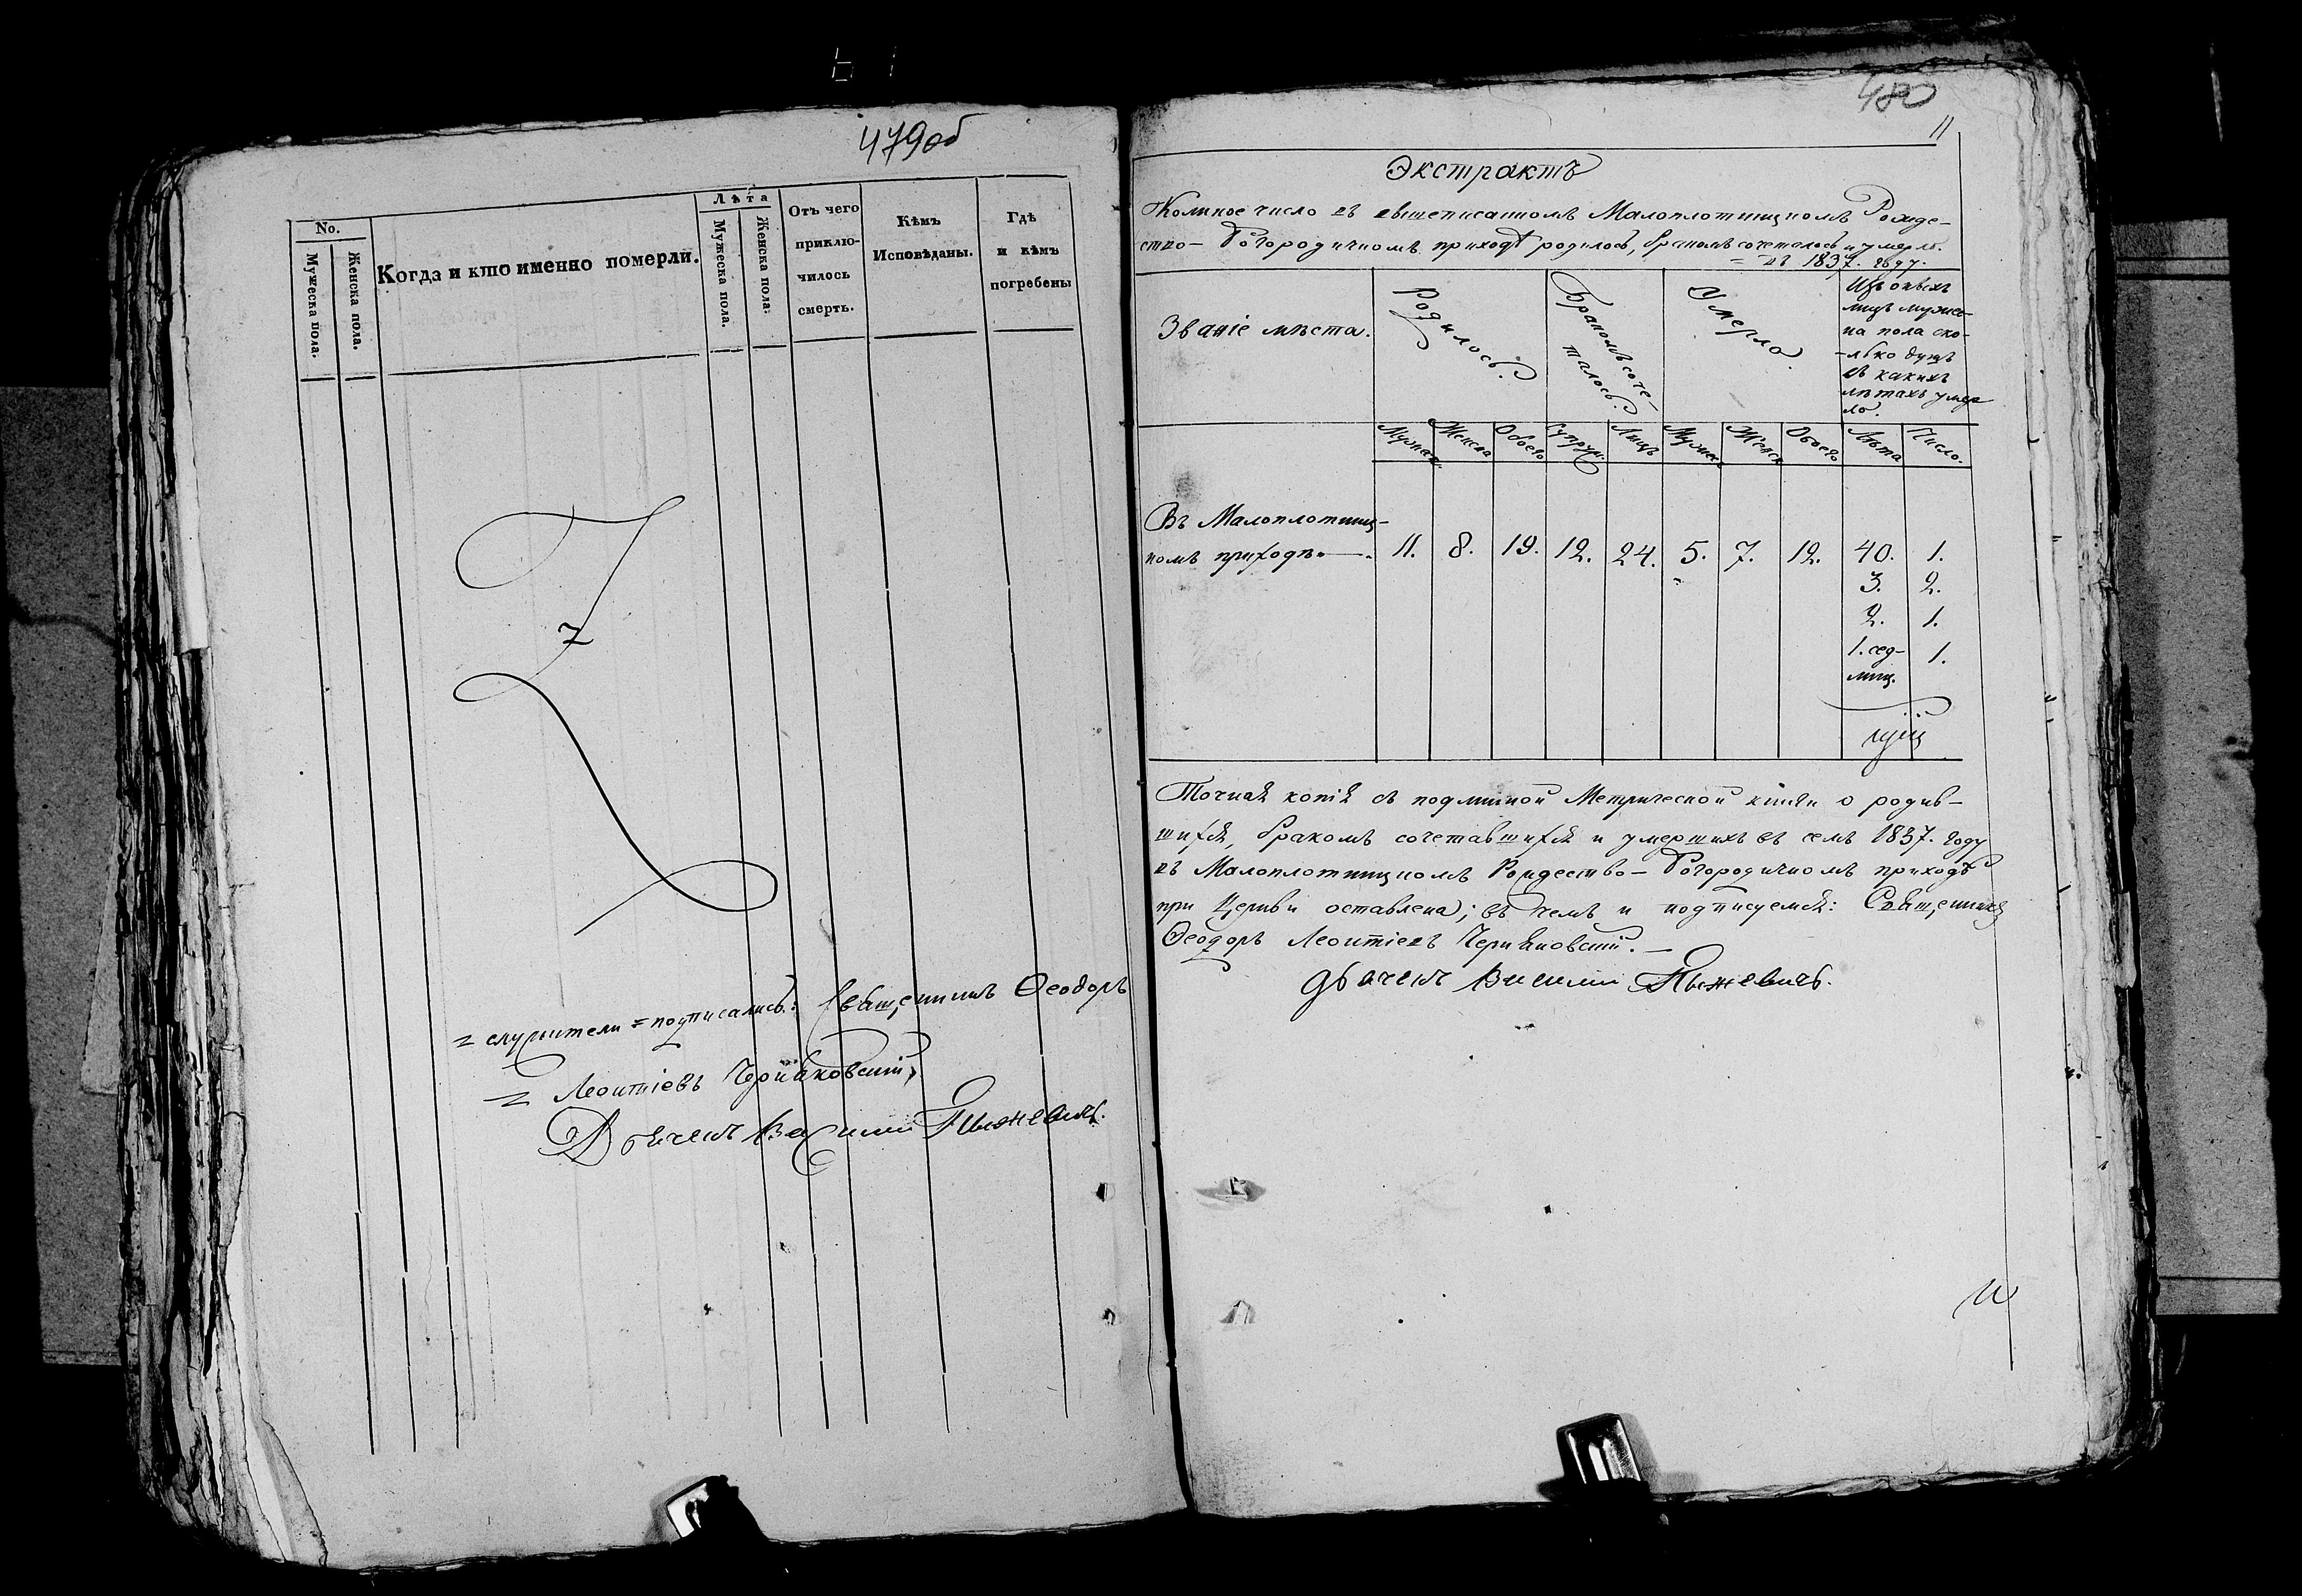 479об
No.
Мужеска пола.
Женска пола.
Когда и кто именно померли.
Лѣта
Мужеска пола.
Женска пола.
Отъ чего
приклю-
чилось
смерть.
Кѣмъ
Исповѣданы.
Гдѣ
и кѣмъ
погребены
= служители = подписались: Священникъ Ѳеодоръ
= Леонтіевъ Чернѣховскій,
Дьячекъ Василій
480
11
Экстрактъ
Коликое число въ вышеписанномъ Малоплотницкомъ Рожде-
ство-Богородичномъ приходѣ родилось, бракомъ сочеталось и умерло.
= въ 1837. году.
Званіе мѣста.
Родилось.
Бракомъ соче-
талось.
Умерло.
Изъ оныхъ
лицъ мужес-
ка пола ско-
-лько душъ
въ какихъ
лѣтахъ умер
ло.
Мужеск. Женска Обоего Супруж. Лицъ Мужес. Женск Обоего Лѣта Число.
Въ Малоплотниц-
комъ приходѣ. 11. 8. 19. 12. 24. 5. 7. 12. 40. 1.
3. 2.
2. 1.
1. сед- 1.
миц.
Точная копія съ подлинной Метрической книги о родив-
шихся, бракомъ сочетавшихся и умершихъ въ семъ 1837. году
въ Малоплотницкомъ Рождество-Богородичномъ приходѣ
при Церкви оставлена; въ чемъ и подписуемся: Священникъ
Ѳеодоръ Леонтіевъ Черняховскій.
дьячекъ Василій